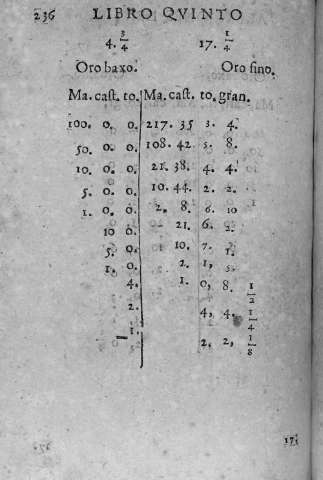 236 LIBRO QVINTO
4. 3/4 17. 1/4
Oro baxo. Oro fino.
Ma. cast. to. Ma. cast. to. gran.
100. 0. 0. 217. 35 3. 4.
50. 0. 0. 108. 42. 5. 8.
10. 0. 0. 21. 38. 4. 4.
5. 0. 0. 10. 44. 2. 2.
1. 0. 0. 2. 8. 6. 10
10 0. 21. 6. 2.
5. 0. 10. 7. 1.
1. 0. 2. 1, 5.
4. 1. 0, 8. 1/2
2. 4, 4, 1/4
1. 2, 2, 1/8